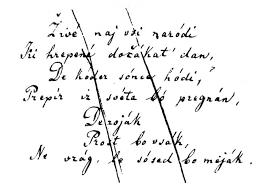 Živé naj vsi naródi
Ki hrepené dočákat' dan,
De koder sónce hódi,
Prepír iz svéta bo pregnàn,
De roják
Prost bo vsák,
Ne vrág, le sósed bo meják.